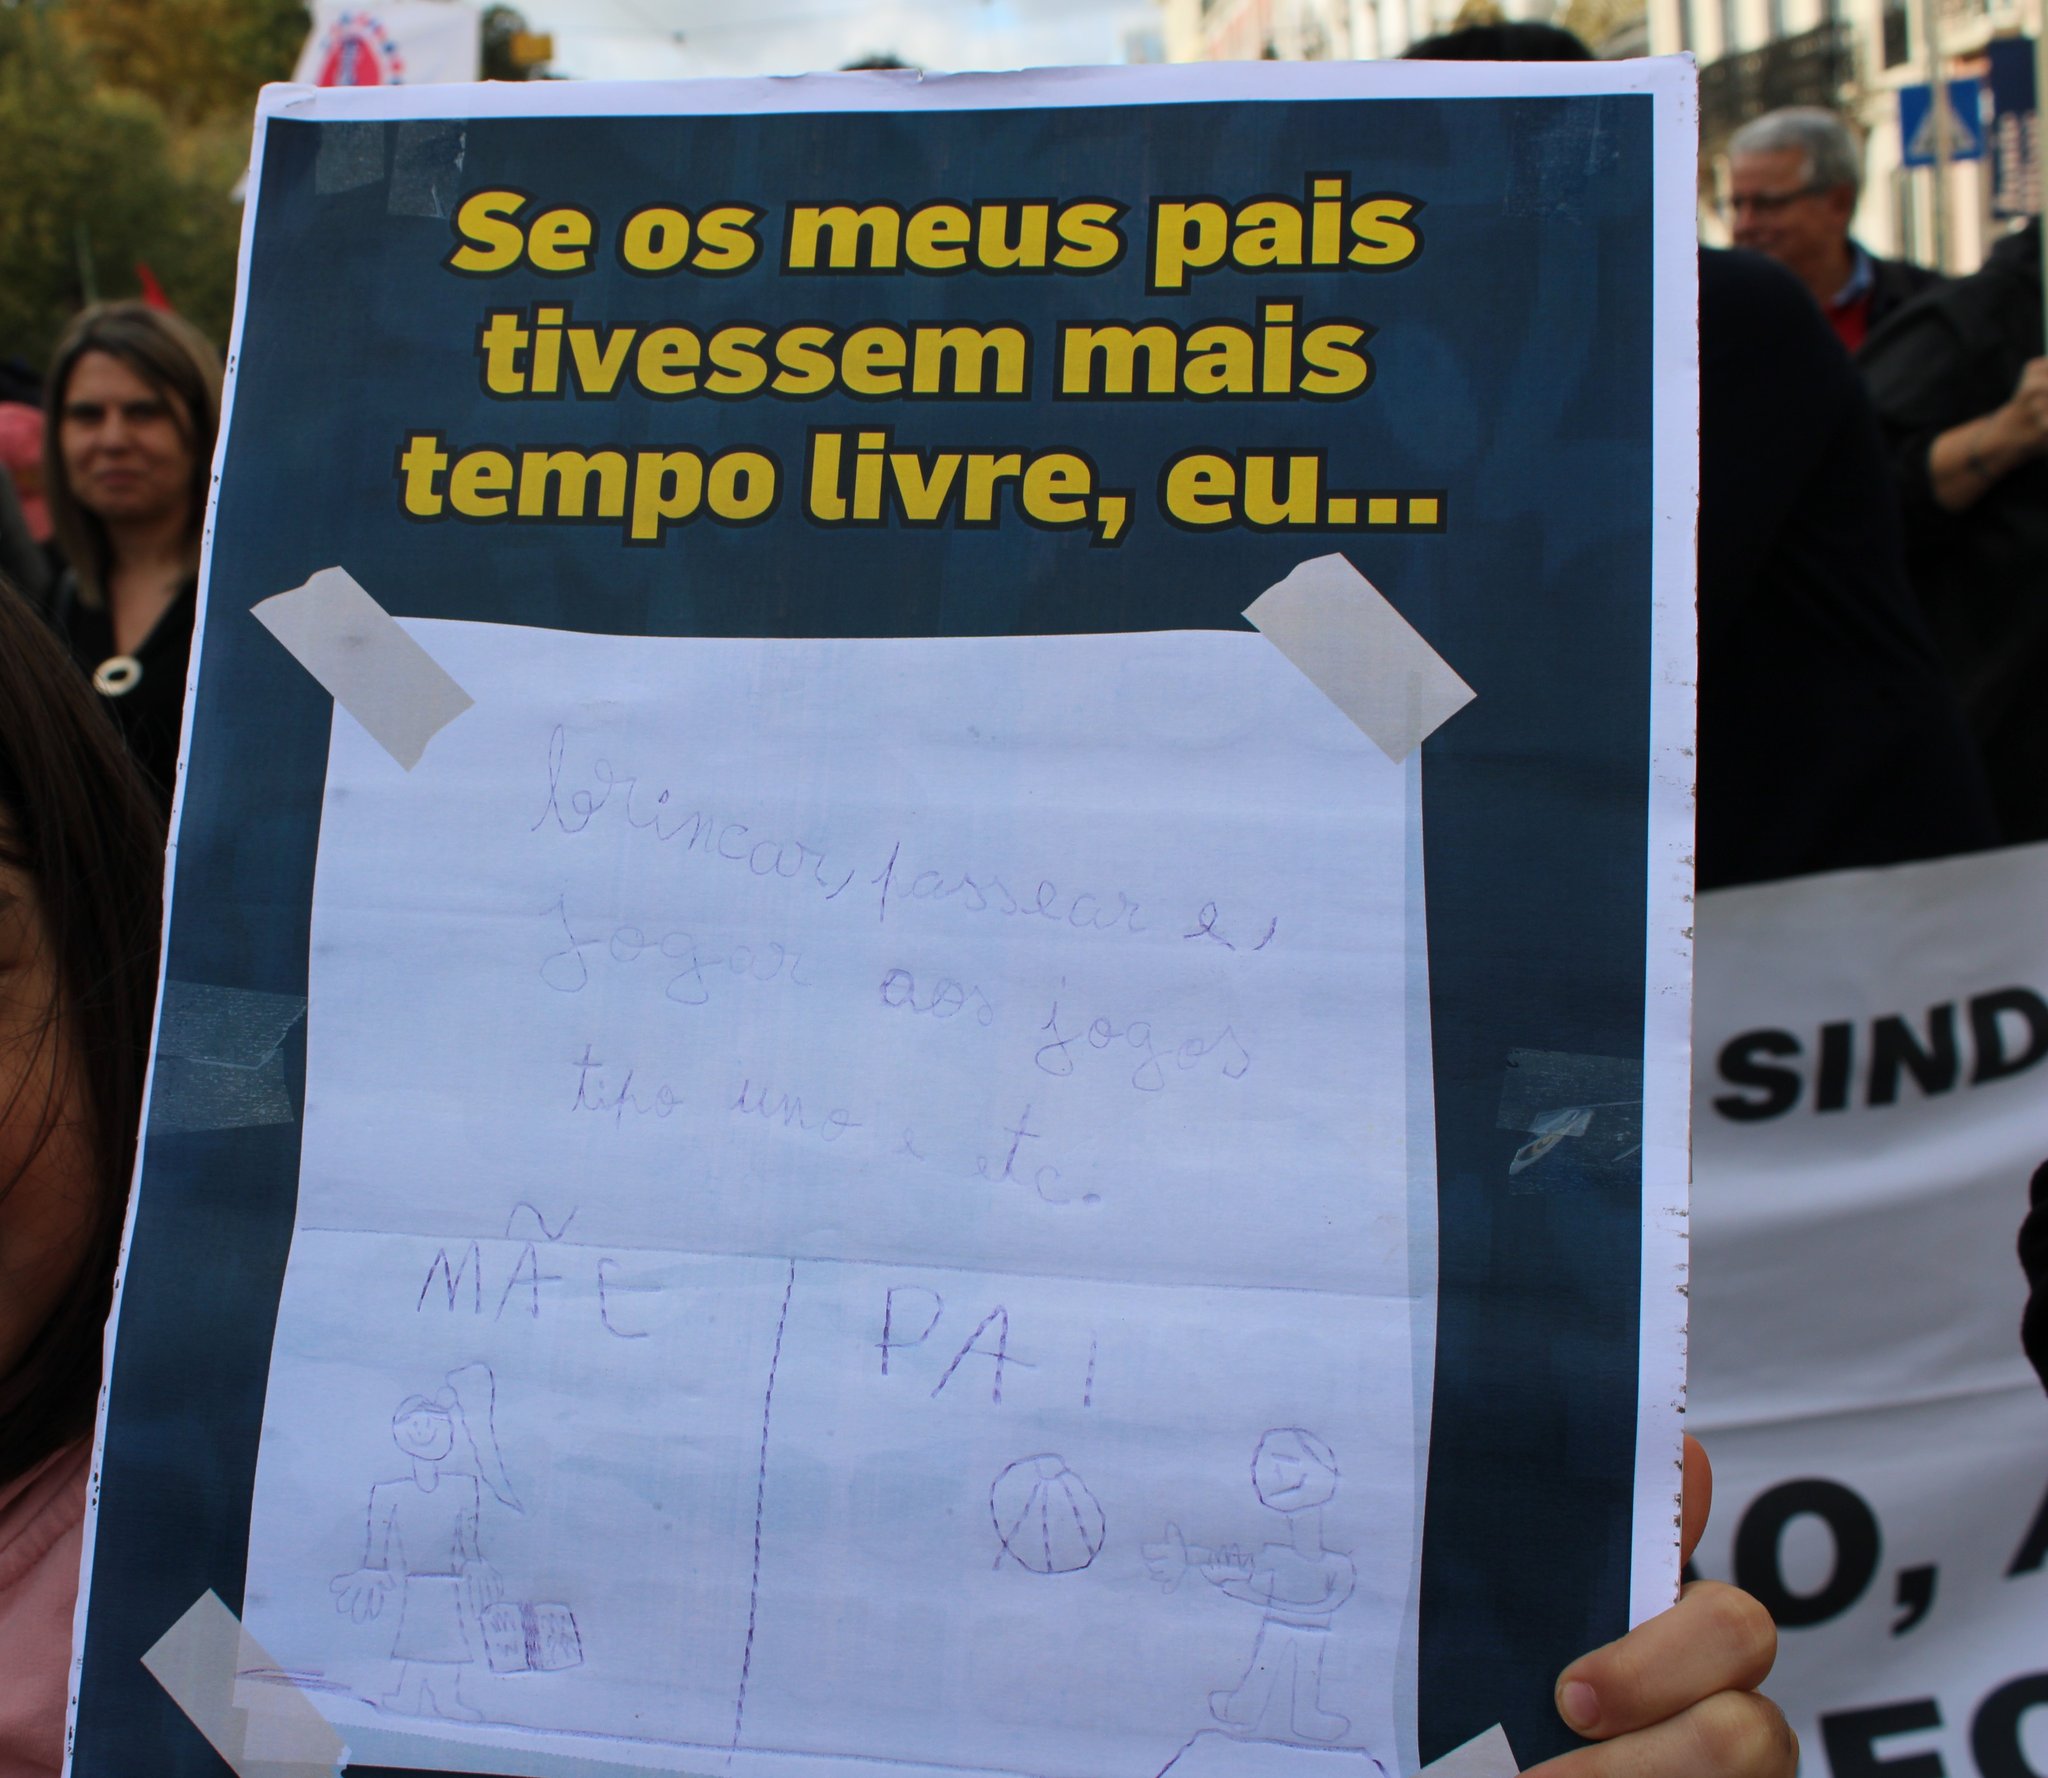 Se os meus pais
tivessem mais
tempo livre, eu...
brincar, passear e,
jogar aos jogos
tipo uno e etc.
MÃE
PAI
SIND
O, A